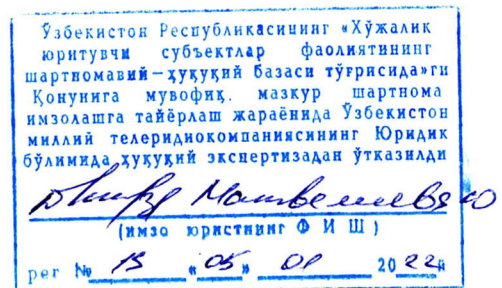 Ўзбекистон Республикасининг «Хўжалик
юритувчи субъектлар фаолиятининг
шартномавий-ҳуқуқий базаси тўғрисида»ги
Қонунига мувофиқ. мазкур шартнома
имзолашга тайёрлаш жараёнида Ўзбекистон
миллий телеридиокомпаниясининг Юридик
бўлимида ҳуқуқий экспертизадан ўтказилди
(имзо юристнинг Ф И Ш)
рег № 13 «05» 01 2022й